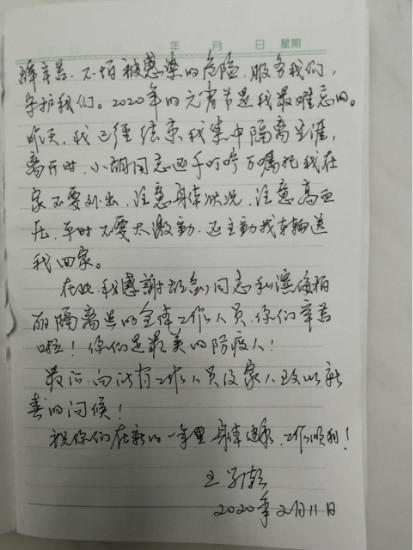 年 月 日 星期
辞辛苦、不怕被感染的危险，服务我们，
守护我们。2020年的元宵节是我最难忘的。
昨天，我已经结束我集中隔离生涯，
离开时，小胡同志还千叮咛万嘱托我在
家不要外出，注意身体状况，注意高血
压，平时不要太激動，还主動找车輛送
我回家。
在此我感謝 同志和滨海
隔离点的全体工作人员，你们辛苦
啦！你们是最美的防疫人！
最后，向所有工作人员及家人致以新
春的问候！
祝你们在新的一年里身体健康，工作顺利！
王
2020年2月11日